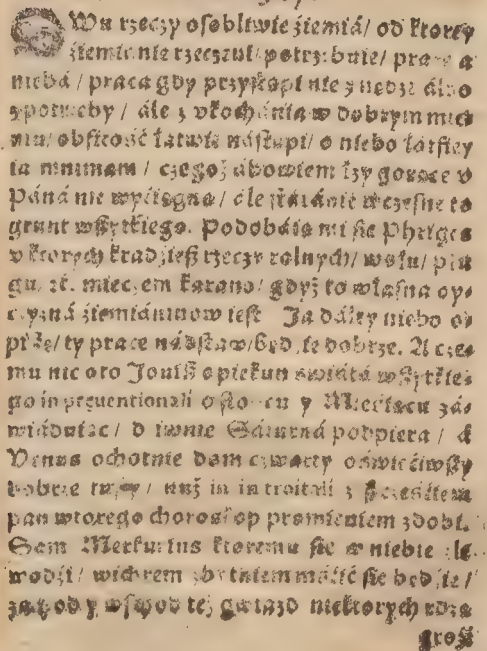 Wu rzeczy osobliwie źiemiá/ od ktorey
źiemiánie rzeczeni/ potrzebuie/ prace a
niebá/ praca gdy przystąpi nie z nędze álbo
z potrzeby/ ále z vkochánia w dobrym mie
niu/ obfitość łatwie nástąpi/ o niebo
mnimam/ czegoż ábowiem łzy gorące v
Páná nie wyćiągną/ ále stáránie wczesne to
grunt wszytkiego. Podobáią mi się
v ktorych kradzież rzeczy rolnych/ wołu/ płu
gu, ꝛc. mieczem karano/ gdyż to własna oy-
czyzná źiemiáninow iest Ja dáley niebo o-
piszę/ ty prace nádstaw/ będzie dobrze. A cze-
mu nie oto Jowisz opiekun świátá wszytkie-
go in preuentionali o słońcu y Mieśiącu zá-
wiáduiąc/ Saturná podpiera/ á
Venus ochotnie dom czwarty oświećiwszy
dobrze tuszy/ nuż in introitali z
pan wtorego horoskop promieniem zdobi.
Sam Merkurius ktoremu się w niebie źle
wodźi/ wichrem zbytniem mśćić się będźie/
zachod y wschod też gwiazd niektorych rdzą
grozi